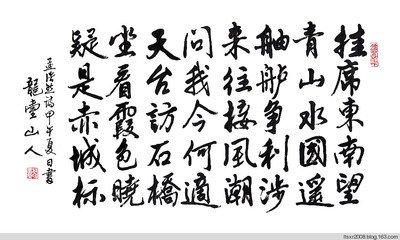 挂席東南望
青山水國遥
舳艫争利涉
来往接風潮
問我今何適
天台訪石橋
坐看霞色曉
疑是赤城標
孟浩然詩甲午夏日書
龍堂山人
ltsxr2008.blog.163.com